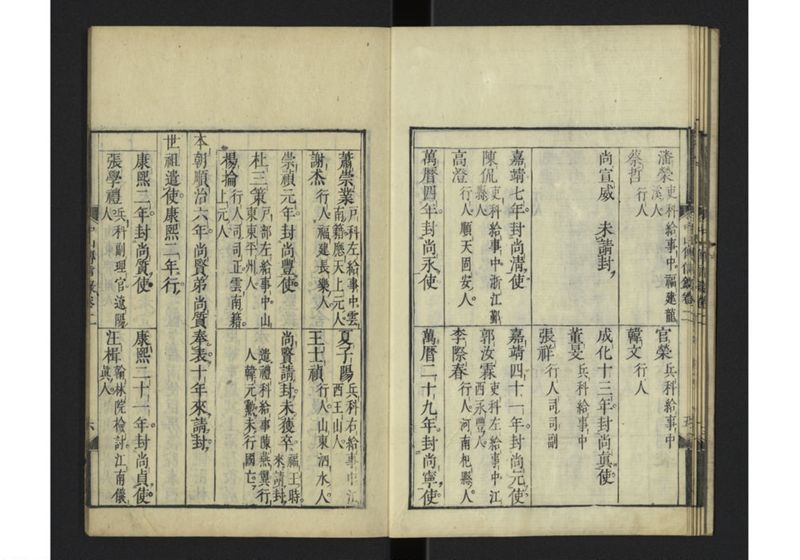 潘榮 吏科給事中福建龍溪人
蔡哲 行人
尚宣威 未請封
嘉靖七年封尚清使
陳侃 吏科給事中浙江鄞縣人
高澄 行人順天固安人
萬曆四年封尚永使
官榮 兵科給事中
韓文 行人
成化十三年封尚真使
董旻 兵科給事中
張祥 行人司司副
嘉靖四十一年封尚元使
郭汝霖 吏科左給事中江西永豐人
李際春 行人河南杞縣人
萬曆二十九年封尚寧使
蕭崇業 戶科左給事中雲南籍應天上元人
謝杰 行人福建長樂人
崇禎元年封尚豐使
杜三策 戶部左給事中山東東平州人
楊掄 行人司司正雲南籍上元人
夏子陽 兵科右給事中江西玉山人
王士禎 行人山東泗水人
尚賢請封未獲卒 福王時來請封遣禮科給事陳燕翼行人韓元勳未行國亡
本朝順治六年尚賢弟尚質奉表十年來請封
世祖遣使康熙二年行
康熙二年封尚質使
張學禮 兵科副理官遼陽人
康熙二十一年封尚貞使
汪楫 翰林院檢討江南儀真人
中山傳信錄卷二
六